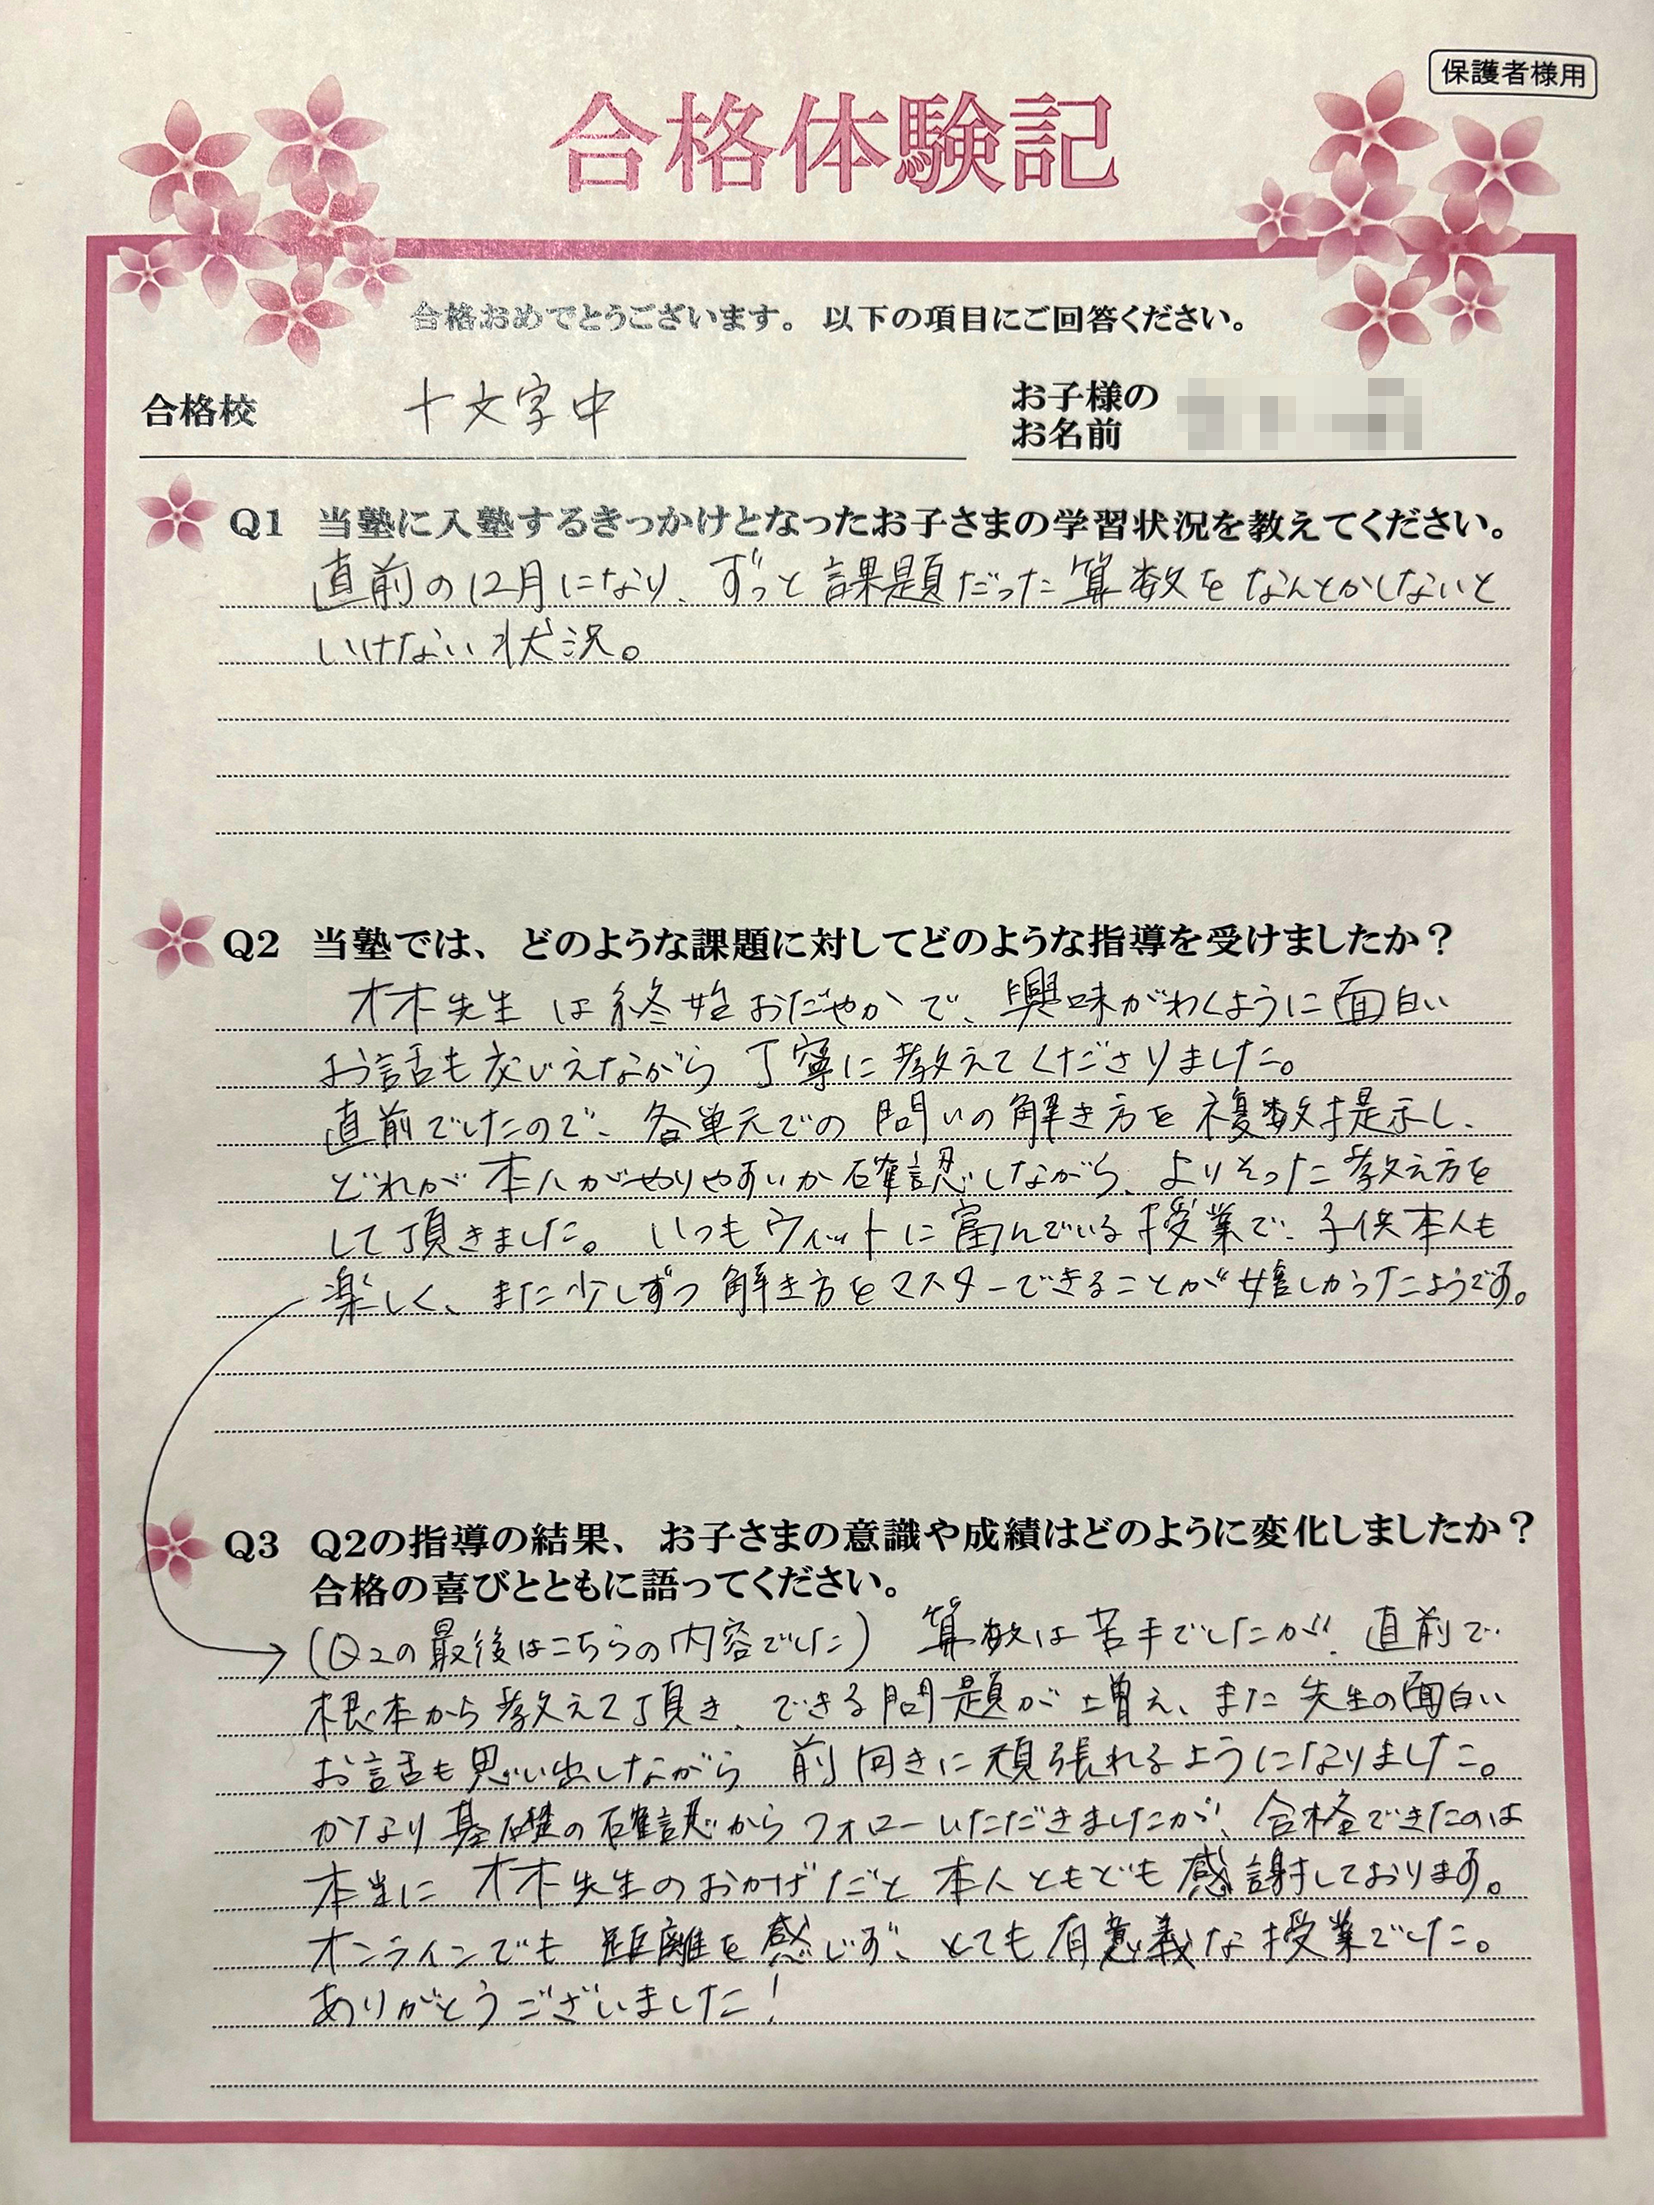 保護者様用
合格体験記
合格おめでとうございます。以下の項目にご回答ください。
合格校 十文字中
お子様の
お名前
Q1 当塾に入塾するきっかけとなったお子さまの学習状況を教えてください。
直前の12月になり、ずっと課題だった算数をなんとかしないと
いけない状況。
Q2 当塾では、どのような課題に対してどのような指導を受けましたか?
木先生は終始おだやかで、興味がわくように面白い
お話も交じえながら丁寧に教えてくださりました。
直前でしたので、各単元での問いの解き方を複数提示し、
どれが本人がやりやすいか確認しながら、よりそった教え方を
して頂きました。いつもウィットに富んでいる授業で、子供本人も
楽しく、また少しずつ解き方をマスターできることが嬉しかったようです。
Q3 Q2の指導の結果、お子さまの意識や成績はどのように変化しましたか?
合格の喜びとともに語ってください。
(Q2の最後はこちらの内容でした) 算数は苦手でしたが、直前で
根本から教えて頂き、できる問題が増え、また先生の面白い
お話も思い出しながら前向きに頑張れるようになりました。
かなり基礎の確認からフォローいただきましたが、合格できたのは
本当に木先生のおかげだと本人ともども感謝しております。
オンラインでも距離を感じず、とても有意義な授業でした。
ありがとうございました!